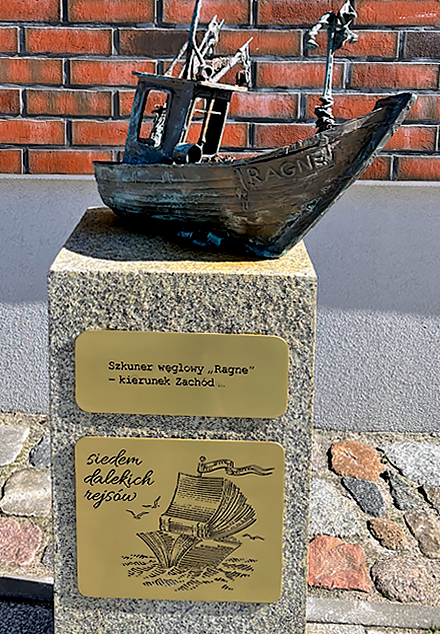 RAGNE
Szkuner węglowy „Ragne”
– kierunek Zachód...
siedem
dalekich
rejsów